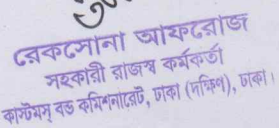 রেকসোনা আফরোজ
সহকারী রাজস্ব কর্মকর্তা
কাস্টমস্ বন্ড কমিশনারেট, ঢাকা (দক্ষিণ), ঢাকা।